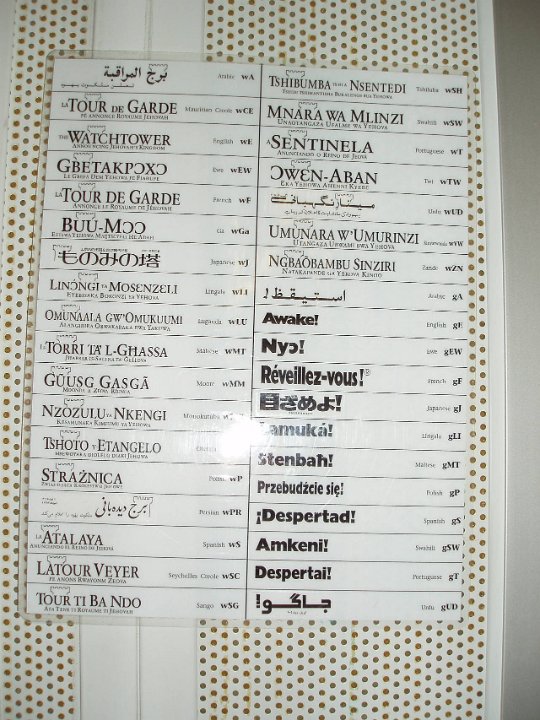 برج المراقبة Arabic wA
LA TOUR DE GARDE Mauritian Creole wCE
PE ANNONCE ROYAUME JEHOVAH
THE WATCHTOWER English wE
ANNOUNCING JEHOVAH'S KINGDOM
GBETAKPƆXƆ Ewe wEW
LA TOUR DE GARDE French wF
ANNONCE LE ROYAUME DE JÉHOVAH
BUÚ-MƆƆ Ga wGa
ものみの塔 Japanese wJ
LINƆ́NGI YA MOSENZELI Lingala wLI
OMUNAALA GW'OMUKUUMI Luganda wLU
IT-TORRI TA' L-GĦASSA Maltese wMT
GŨUSG GASGÃ Moore wMM
NZOZULU YA NKENGI Monokutuba
TSHOTO Y'ETANGELO
STRAŻNICA Polish wP
برج دیده‌بانی Persian wPR
LA ATALAYA Spanish wS
ANUNCIANDO EL REINO DE JEHOVÁ
LATOUR VEYER Seychelles Creole wSC
PE ANONS RWAYONM ZEOVA
TOUR TI BA NDO Sango wSG
AYA TËNË TI ROYAUME TI JÉHOVAH
TSHIBUMBA TSHIA NSENTEDI Tshiluba wSH
MNARA WA MLINZI Swahili wSW
UNAOTANGAZA UFALME WA YEHOVA
A SENTINELA Portuguese wT
ANUNCIANDO O REINO DE JEOVÁ
ƆWƐN-ABAN Twi wTW
EKA YEHOWA AHENNI KYERƐ
مینارِنگہبانی Urdu wUD
UMUNARA W'UMURINZI wYW
UTANGAZA UBWAMI BWA YEHOVA
NGBAƆBAMBU SINZIRI Zande wZN
استيقظ! Arabic gA
Awake! English gE
Nyɔ! Ewe gEW
Réveillez-vous!® French gF
目ざめよ! Japanese gJ
Lamuká! Lingala gLI
Stenbaħ! Maltese gMT
Przebudźcie się! Polish gP
¡Despertad! Spanish gS
Amkeni! Swahili gSW
Despertai! Portuguese gT
جاگو! Urdu gUD